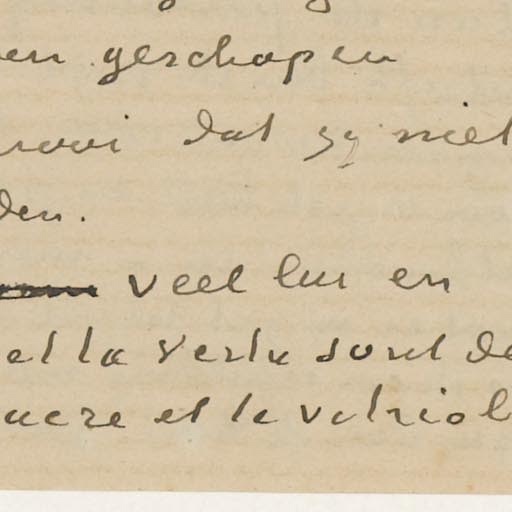 en geschapen
mooi dat zy niet
den.
veel lur en
et la vertu sont de
sucre et le vitriol